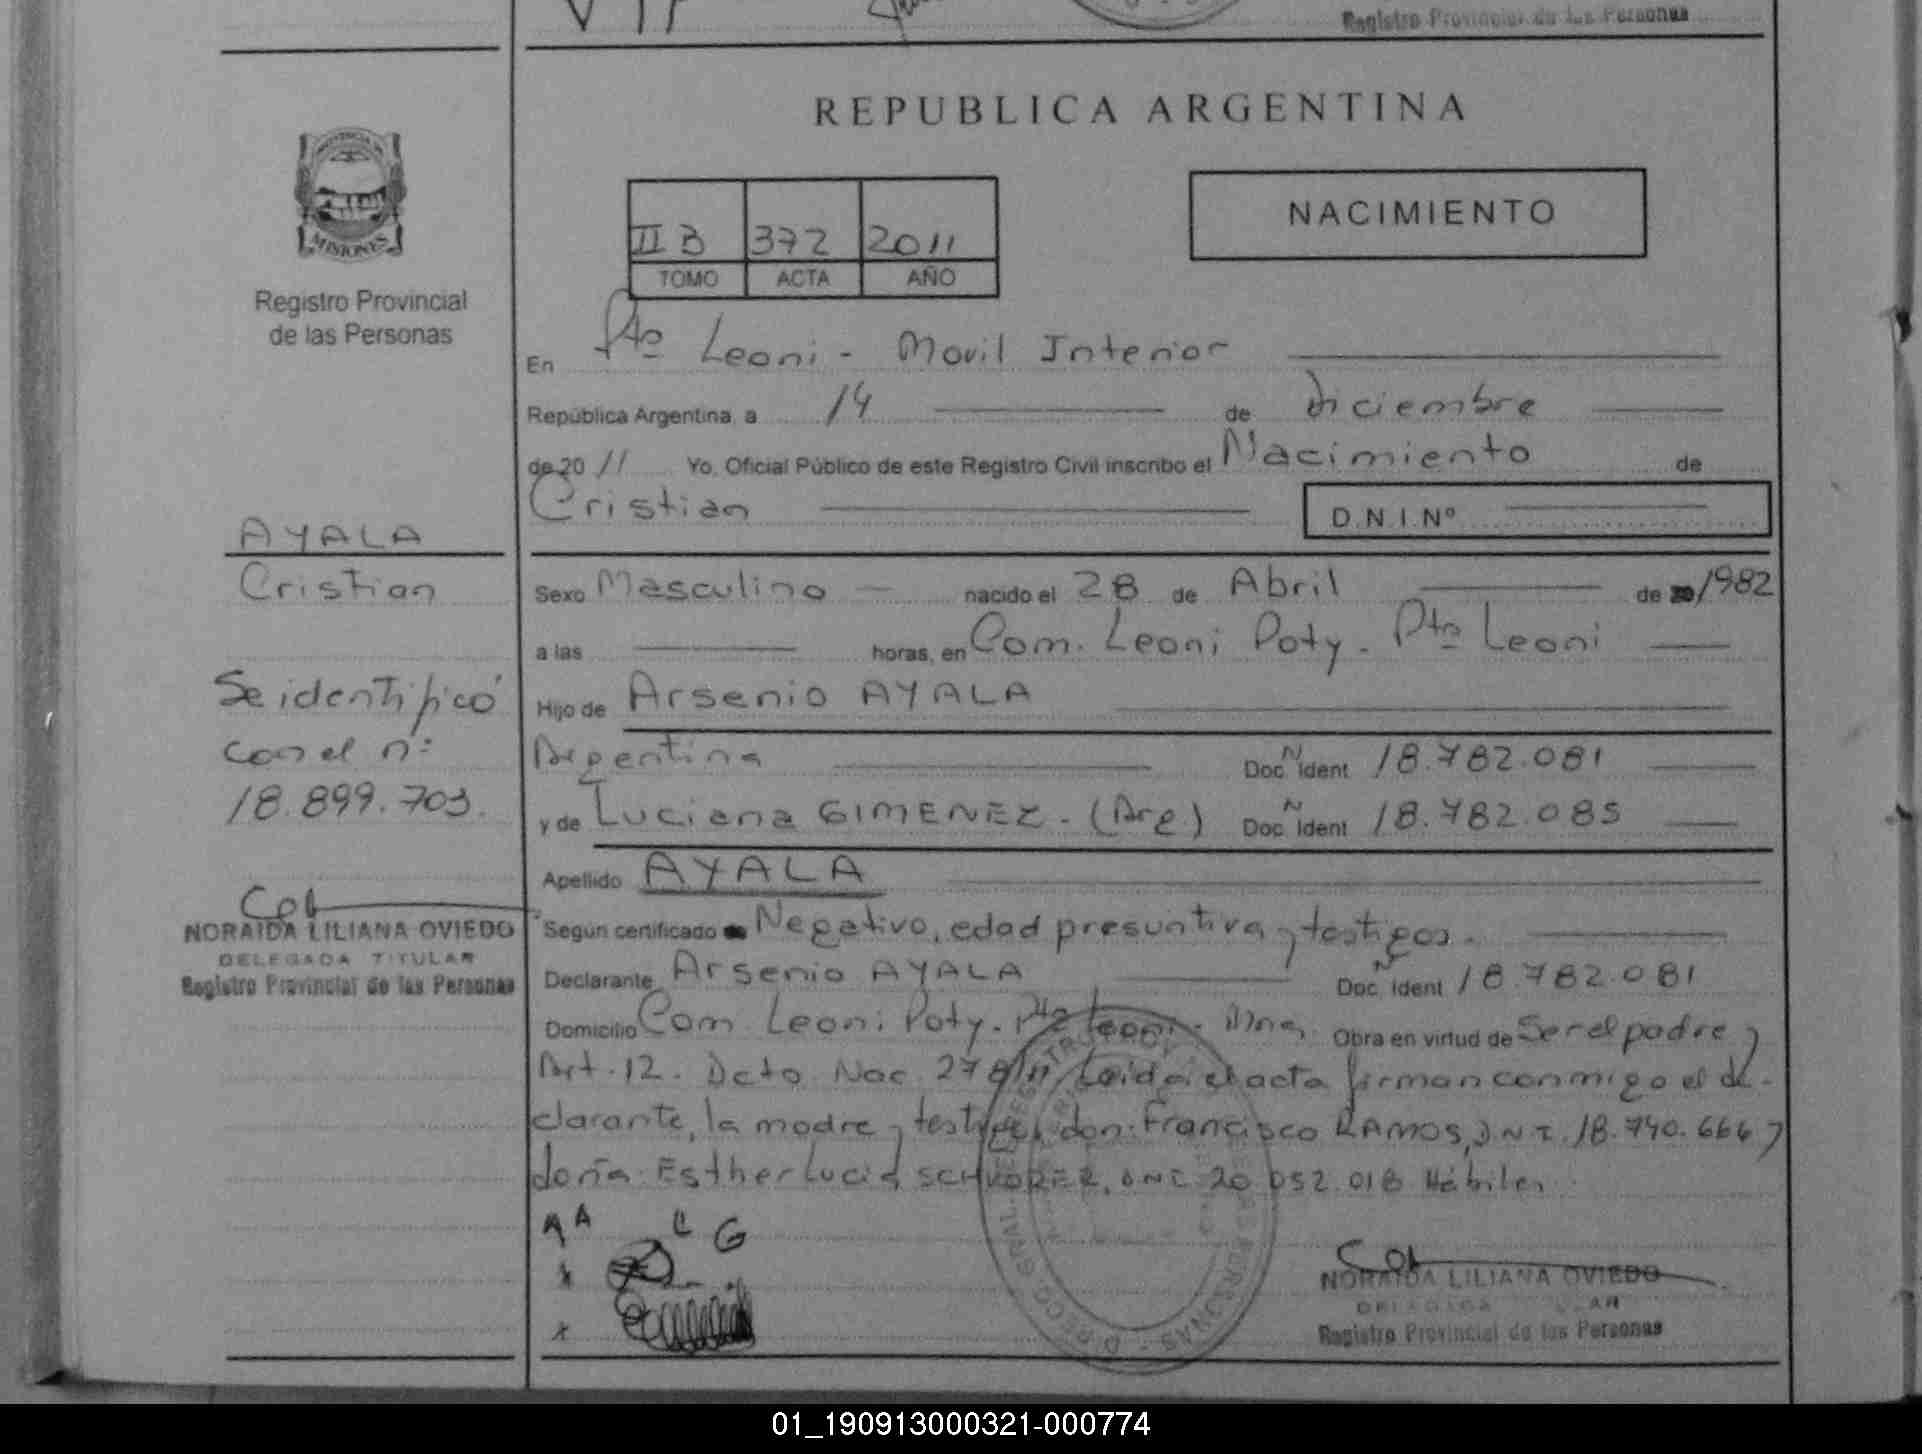 Registro Provincial de las Personas
REPUBLICA ARGENTINA
PROVINCIA DE
MISIONES
Registro Provincial
de las Personas
II B 372 2011
TOMO ACTA AÑO
NACIMIENTO
En Pto Leoni - Movil Interior
República Argentina, a 14 de diciembre
de 20 11 Yo, Oficial Público de este Registro Civil inscribo el Nacimiento de
Cristian D.N.I.Nº
AYALA
Cristian
Se identificó
con el nº:
18.899.703.
NORAIDA LILIANA OVIEDO
DELEGADA TITULAR
Registro Provincial de las Personas
Sexo Masculino nacido el 28 de Abril de 1982
a las horas, en Com. Leoni Poty. Pto Leoni
Hijo de Arsenio AYALA
Argentina Doc. Ident N 18.782.081
y de Luciana GIMENEZ. (Arg) Doc. Ident N 18.782.085
Apellido AYALA
Según certificado Negativo, edad presuntiva y testigos.
Declarante Arsenio AYALA Doc. Ident N 18.782.081
Domicilio Com. Leoni Poty. Pto Leoni. Mnes Obra en virtud de Ser el padre y
Art. 12. Dcto Nac. 278/11 Leida el acta firman conmigo el de-
clarante, la madre y testigos don: Francisco RAMOS, DNI. 18.740.666 y
doña: Esther Lucia DNI 20 052.018 Hábiles
A A L G
x
x
NORAIDA LILIANA OVIEDO
Registro Provincial de las Personas
01_190913000321-000774